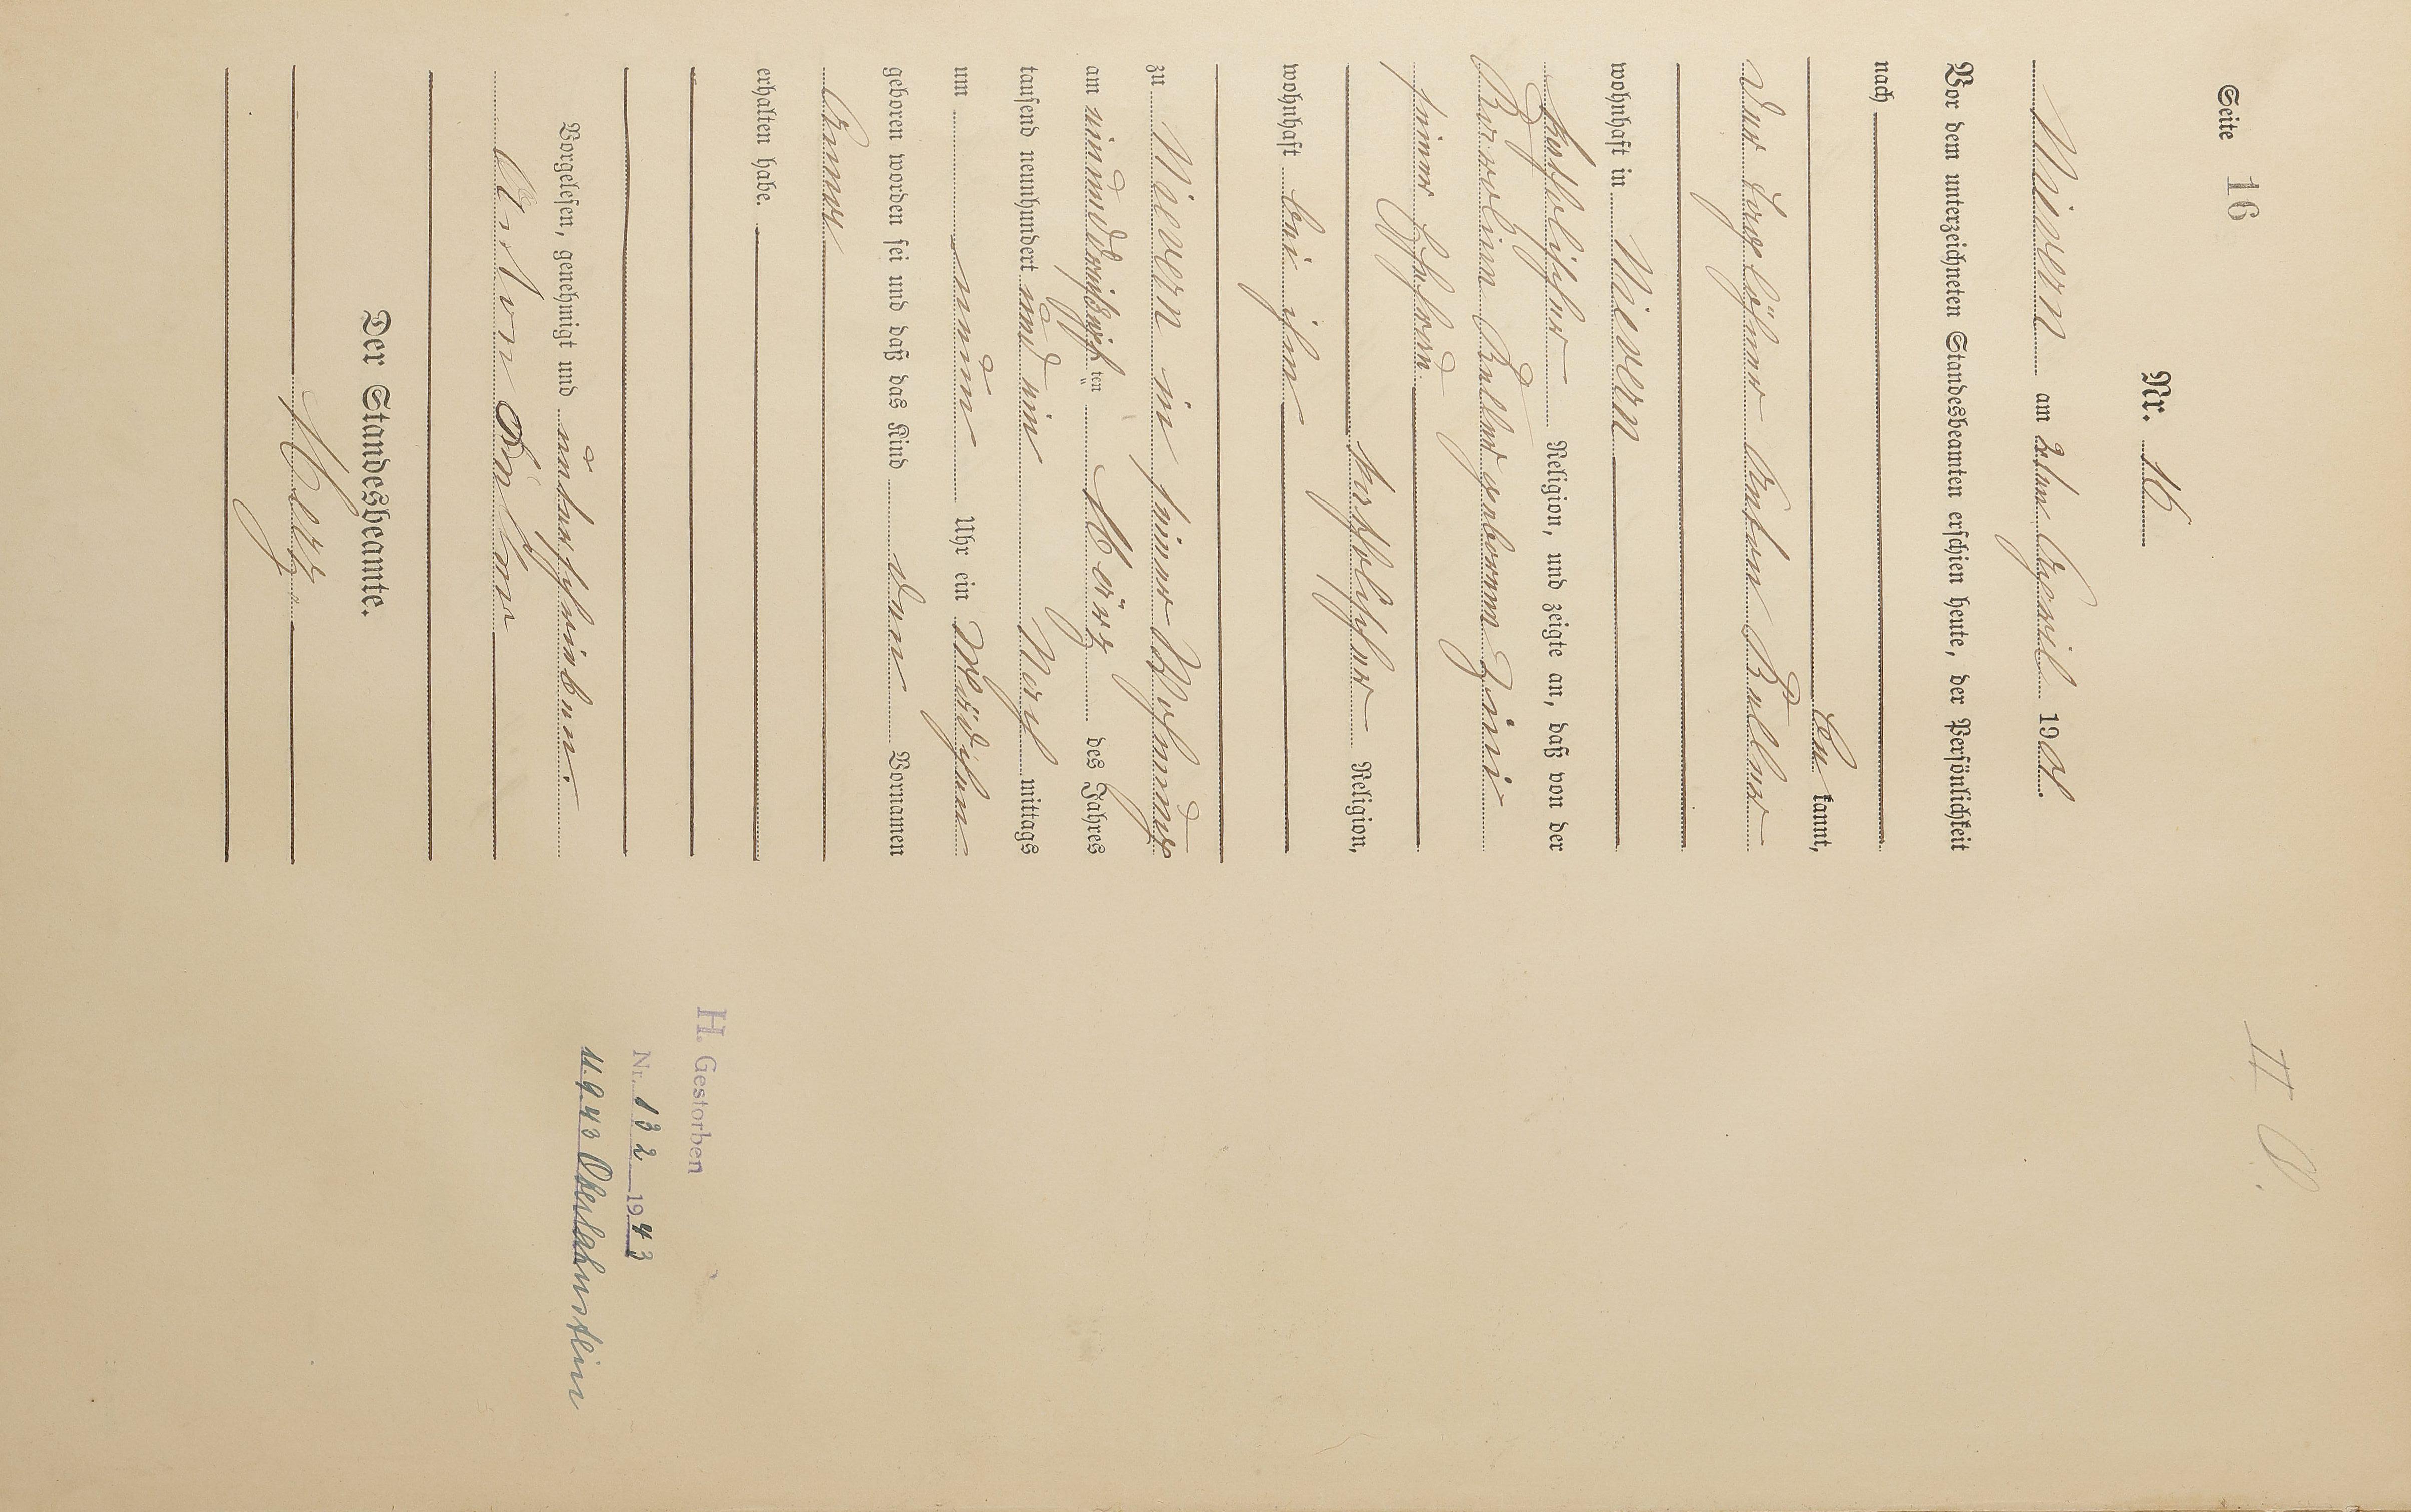 Seite 16
Nr. 16
Nievern am 2ten April 1901.
Vor dem unterzeichneten Standesbeamten erschien heute, der Persönlichkeit
nach
be kannt,
der Tagelöhner Anton
wohnhaft in Nievern
katholischer Religion, und zeigte an, daß von der
geborenen
seiner Ehefrau
katholischer Religion,
wohnhaft bei ihm
zu Nievern in seiner Wohnung
am einunddreißigsten ten März des Jahres
tausend neunhundert und ein Nach mittags
um neun Uhr ein Mädchen
geboren worden sei und daß das Kind den Vornamen
Anna
erhalten habe.
Vorgelesen, genehmigt und unterschrieben.
Anton
Der Standesbeamte.
H. Gestorben
Nr. 132 1943
11.9.43 Oberlahnstein